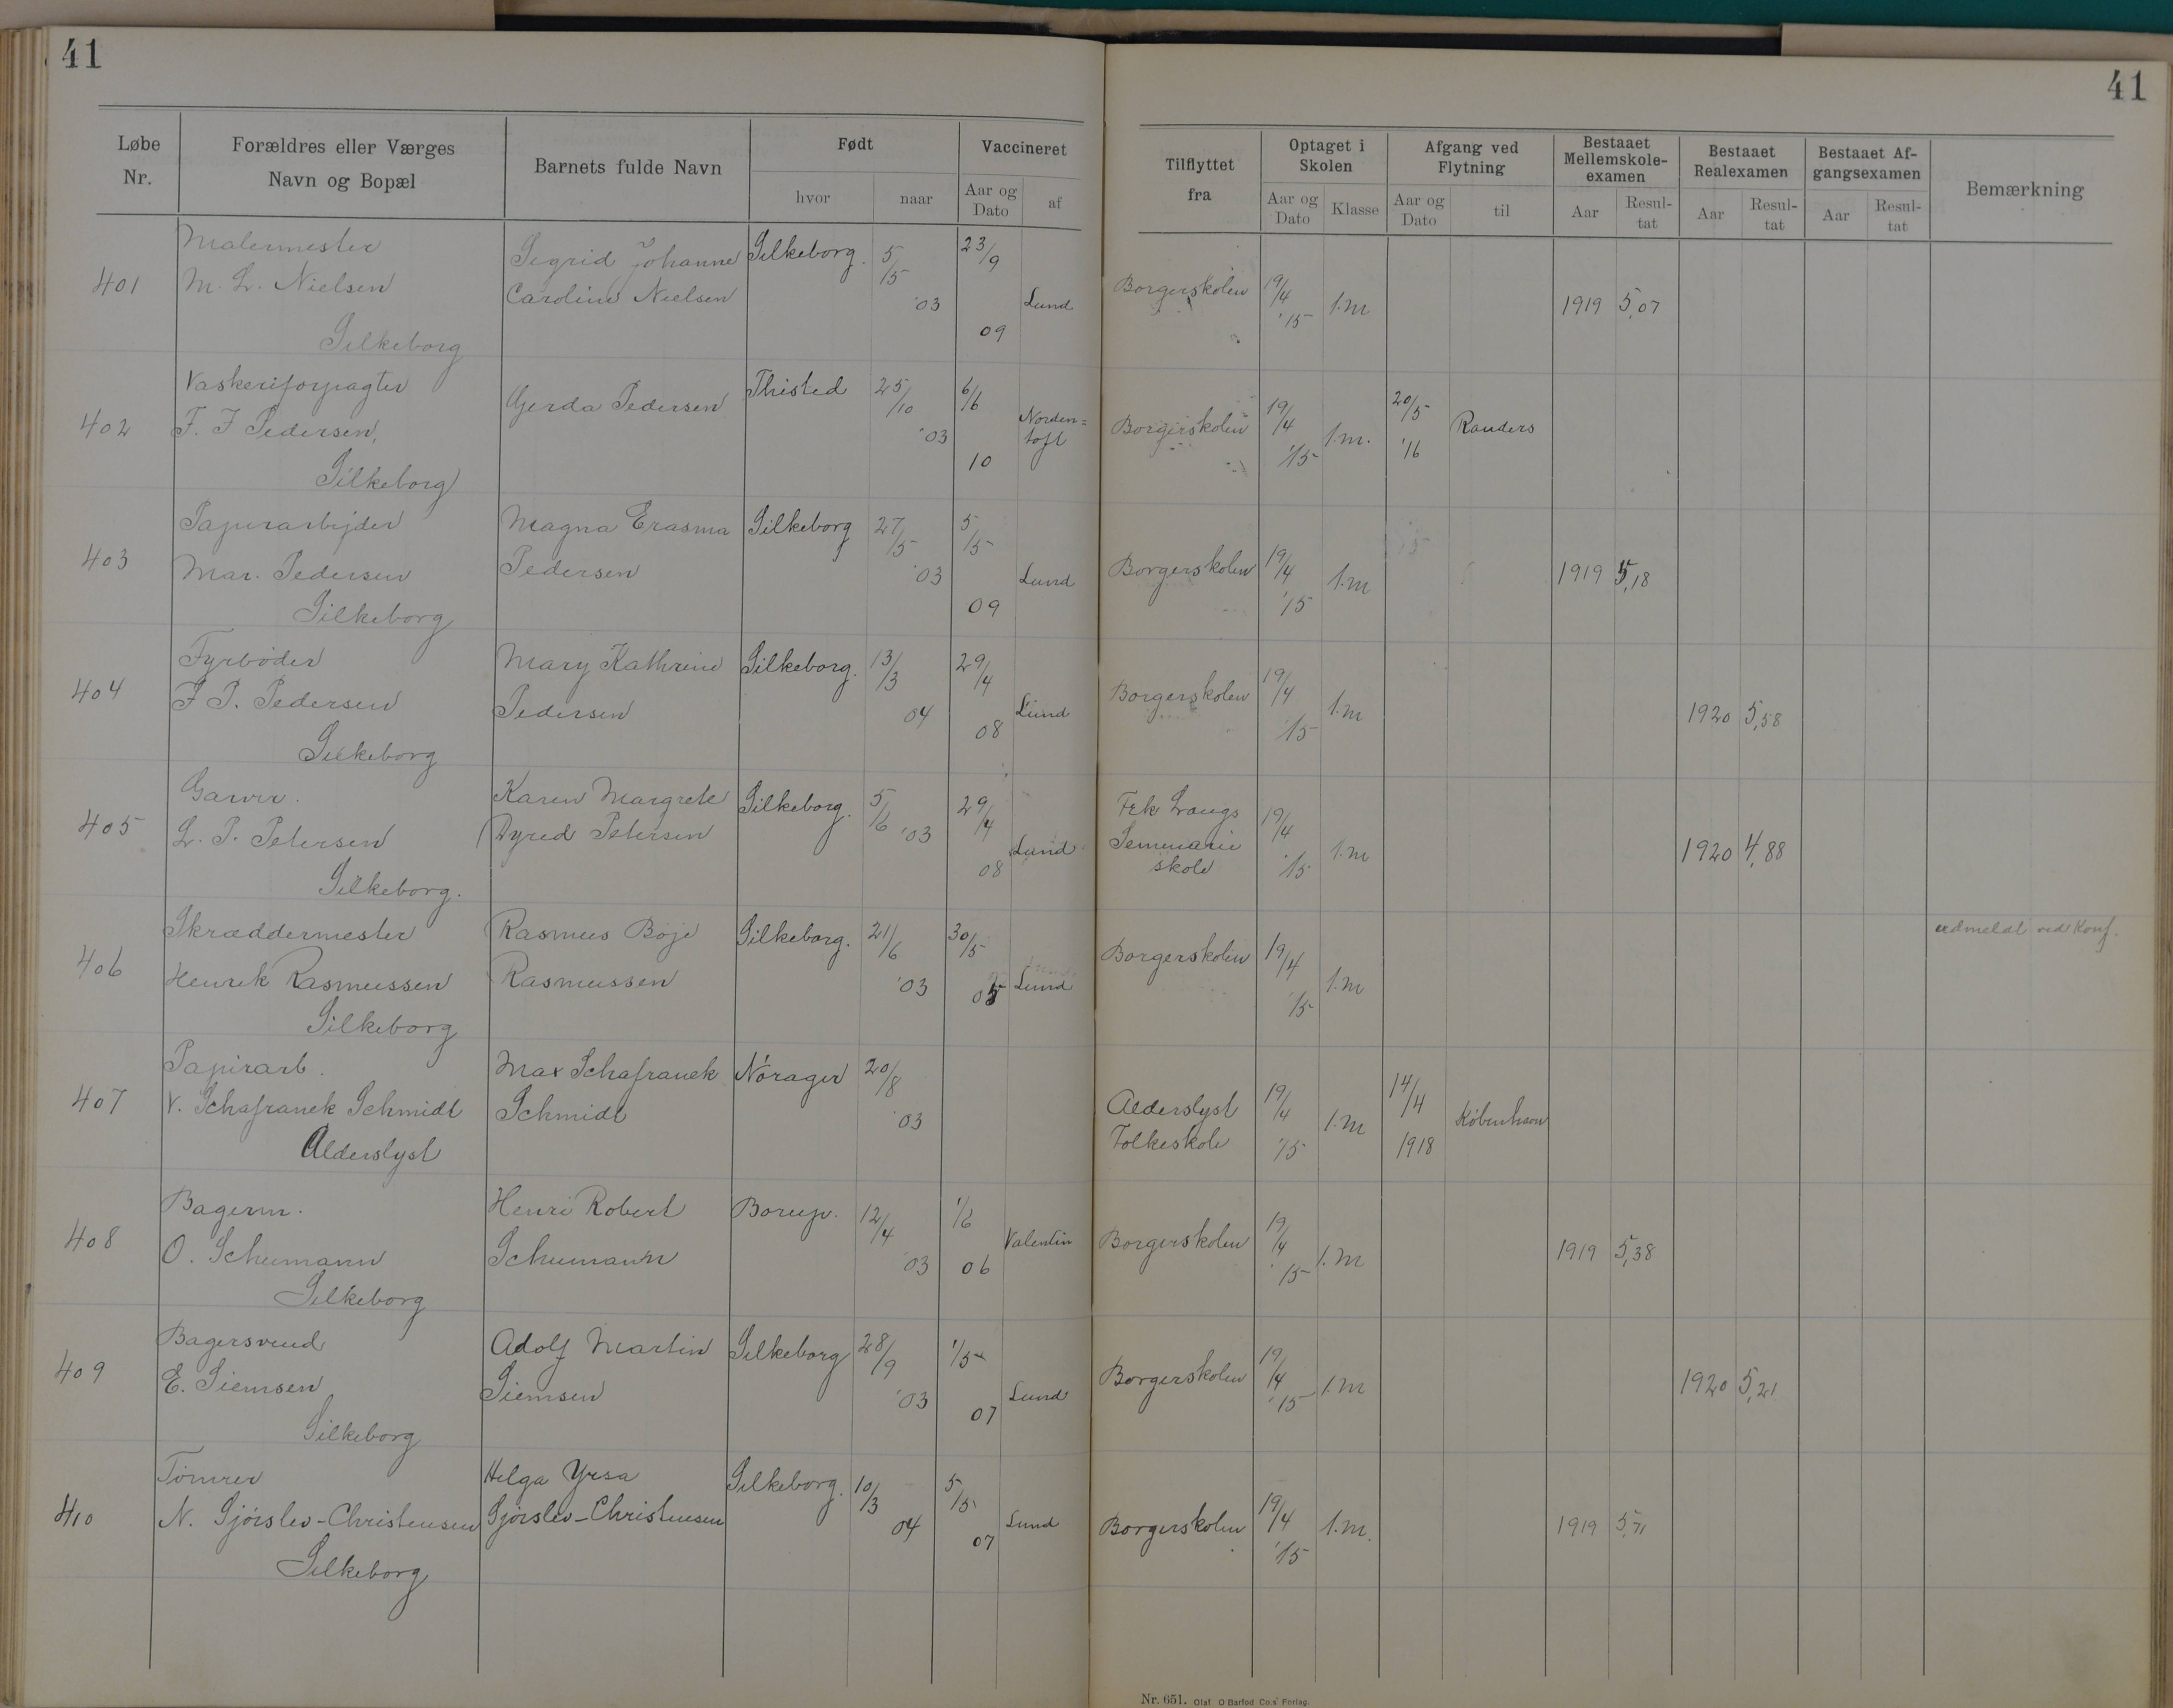 41
41
Løbe Nr.
Forældres eller Værges Navn og Bopæl
Barnets fulde Navn
Født
hvor
naar
Vaccineret
Aar og Dato
af
Tilflyttet fra
Optaget i Skolen
Aar og Dato
Klasse
Afgang ved Flytning
Aar og Dato
til
Bestaaet Mellemskole-examen
Aar
Resul-tat
Bestaaet Realexamen
Aar
Resul-tat
Bestaaet Af-gangsexamen
Aar
Resul-tat
Bemærkning
401
Malermester
M. L. Nielsen
Silkeborg
Sigrid Johanne
Caroline Nielsen
Silkeborg.
5/5 '03
23/9 09
Lund
Borgerskolen
19/4 '15
1.m
1919
5,07
402
Vaskeriforpagter
F. J Pedersen,
Silkeborg
Gerda Pedersen
Thisted
25/10 '03
6/6 10
Norden=
toft
Borgerskolen
19/4 '15
1.m.
20/5 '16
Randers
403
Papirarbejder
Mar. Pedersen
Silkeborg
Magna Erasma
Pedersen
Silkeborg
27/5 '03
5/5 09
Lund
Borgerskolen
19/4 '15
1.m
1919
5,18
404
Fyrbøder
J P. Pedersen
Silkeborg
Mary Kathrine
Pedersen
Silkeborg.
13/3 04
29/4 08
Lund
Borgerskolen
19/4 '15
1.m
1920
5,58
405
Garver.
L. P. Petersen
Silkeborg.
Karen Margrete
Dyred Petersen
Silkeborg.
5/6 '03
29/4 08
Lund
Frk Langs
Seminarie
skole
19/4 '15
1.m
1920
4,88
406
Skræddermester
Henrik Rasmussen
Silkeborg
Rasmus Böje
Rasmussen
Silkeborg.
21/6 '03
30/5 05
Lund
Borgerskolen
19/4 '15
1.m
udmeldt ved Konf.
407
Papirarb.
V. Schafranek Schmidt
Alderslyst
Max Schafranek
Schmidt
Nórager
20/8 '03
Alderslyst
Folkeskole
19/4 '15
1.m
14/4 1918
København
408
Bagerm.
O. Schumann
Silkeborg
Henri Robert
Schumann
Borup.
12/4 '03
1/6 06
Valentin
Borgerskolen
19/4 '15
1.m
1919
5,38
409
Bagersvend
E. Siemsen
Silkeborg
Adolf Martin
Siemsen
Silkeborg
28/9 '03
1/5 07
Lund
Borgerskolen
19/4 '15
1.m
1920
5,21
410
Tömrer
N. Sjörslev-Christensen
Silkeborg
Helga Yrsa
Sjörslev-Christensen
Silkeborg.
10/3 04
5/5 07
Lund
Borgerskolen
19/4 '15
1.m.
1919
5,71
Nr. 651. Olaf O Barfod Co.s' Forlag.